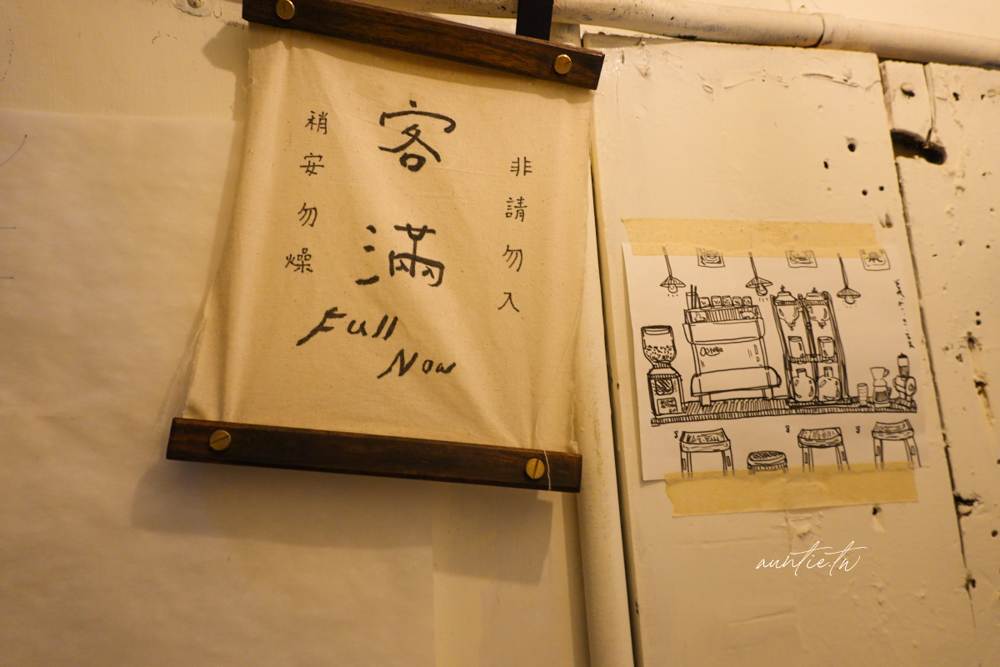 非請勿入
客滿
稍安勿燥
Full
Now
auntie.tw